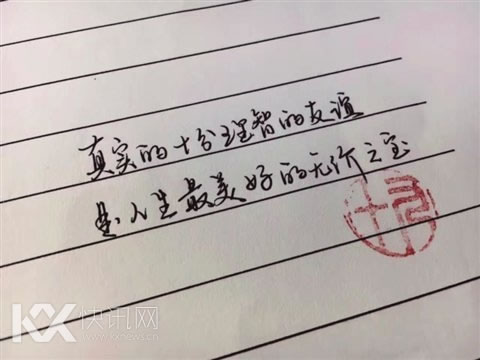 真实的十分理智的友谊
是人生最美好的无价之宝
KX快讯网
www.kxnews.cn